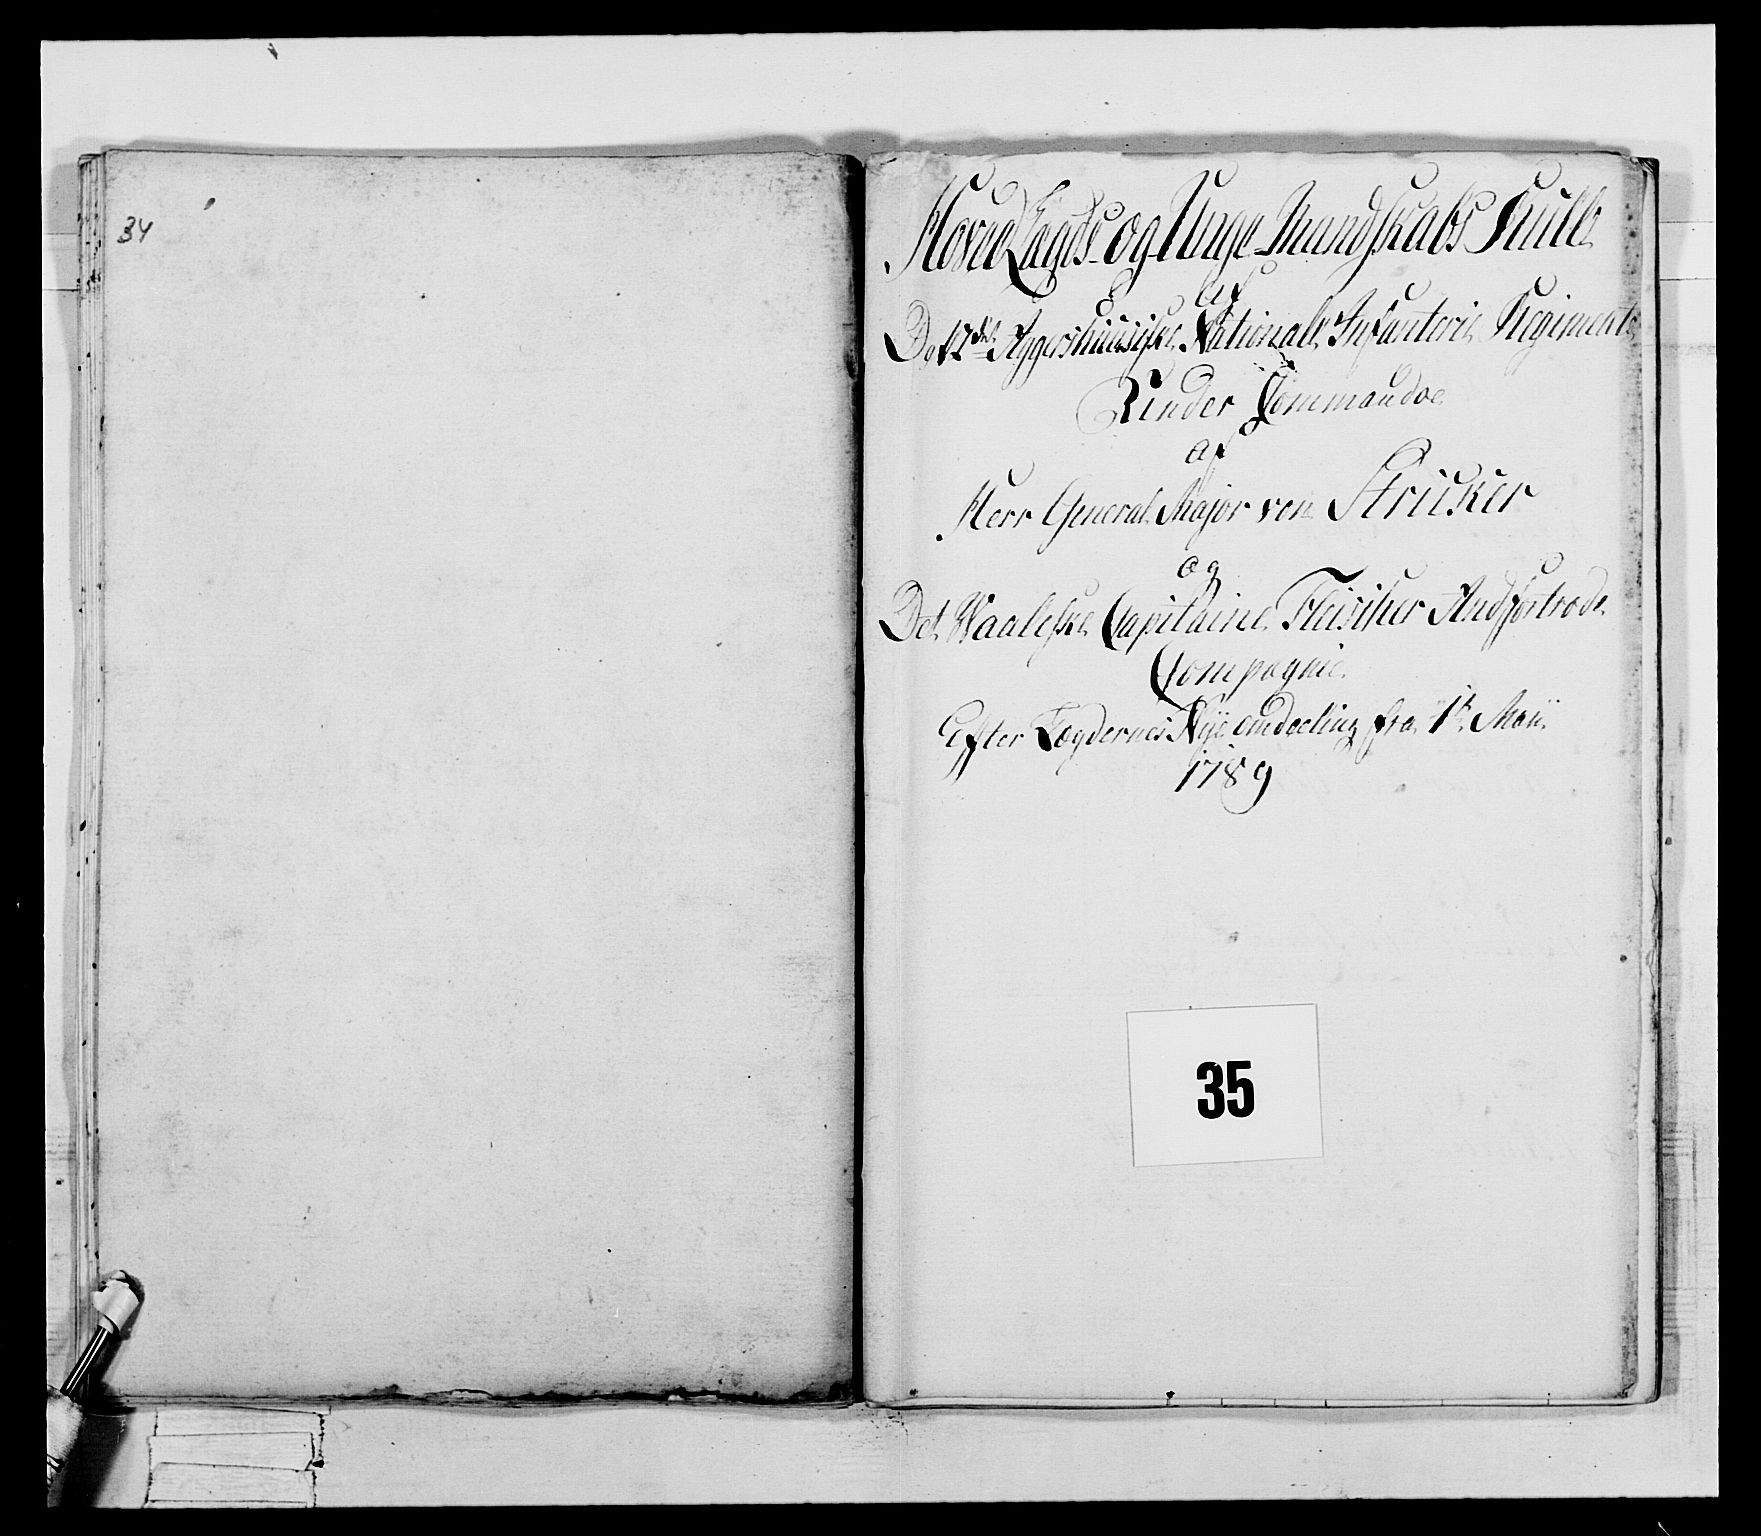 34
Hoved Lægds og Unge Mandskabs Rulle
af
Det 2det Aggershuusiske Nationale Infanterie Regiments
Under Commandoe
af
Herr General Major von Stricker
og
Det Waaleske Capitaine Fleischer Andfortrode
Compagnie
Efter Lægdernes Nÿe inddeeling fra 1te Maÿ
1789
35